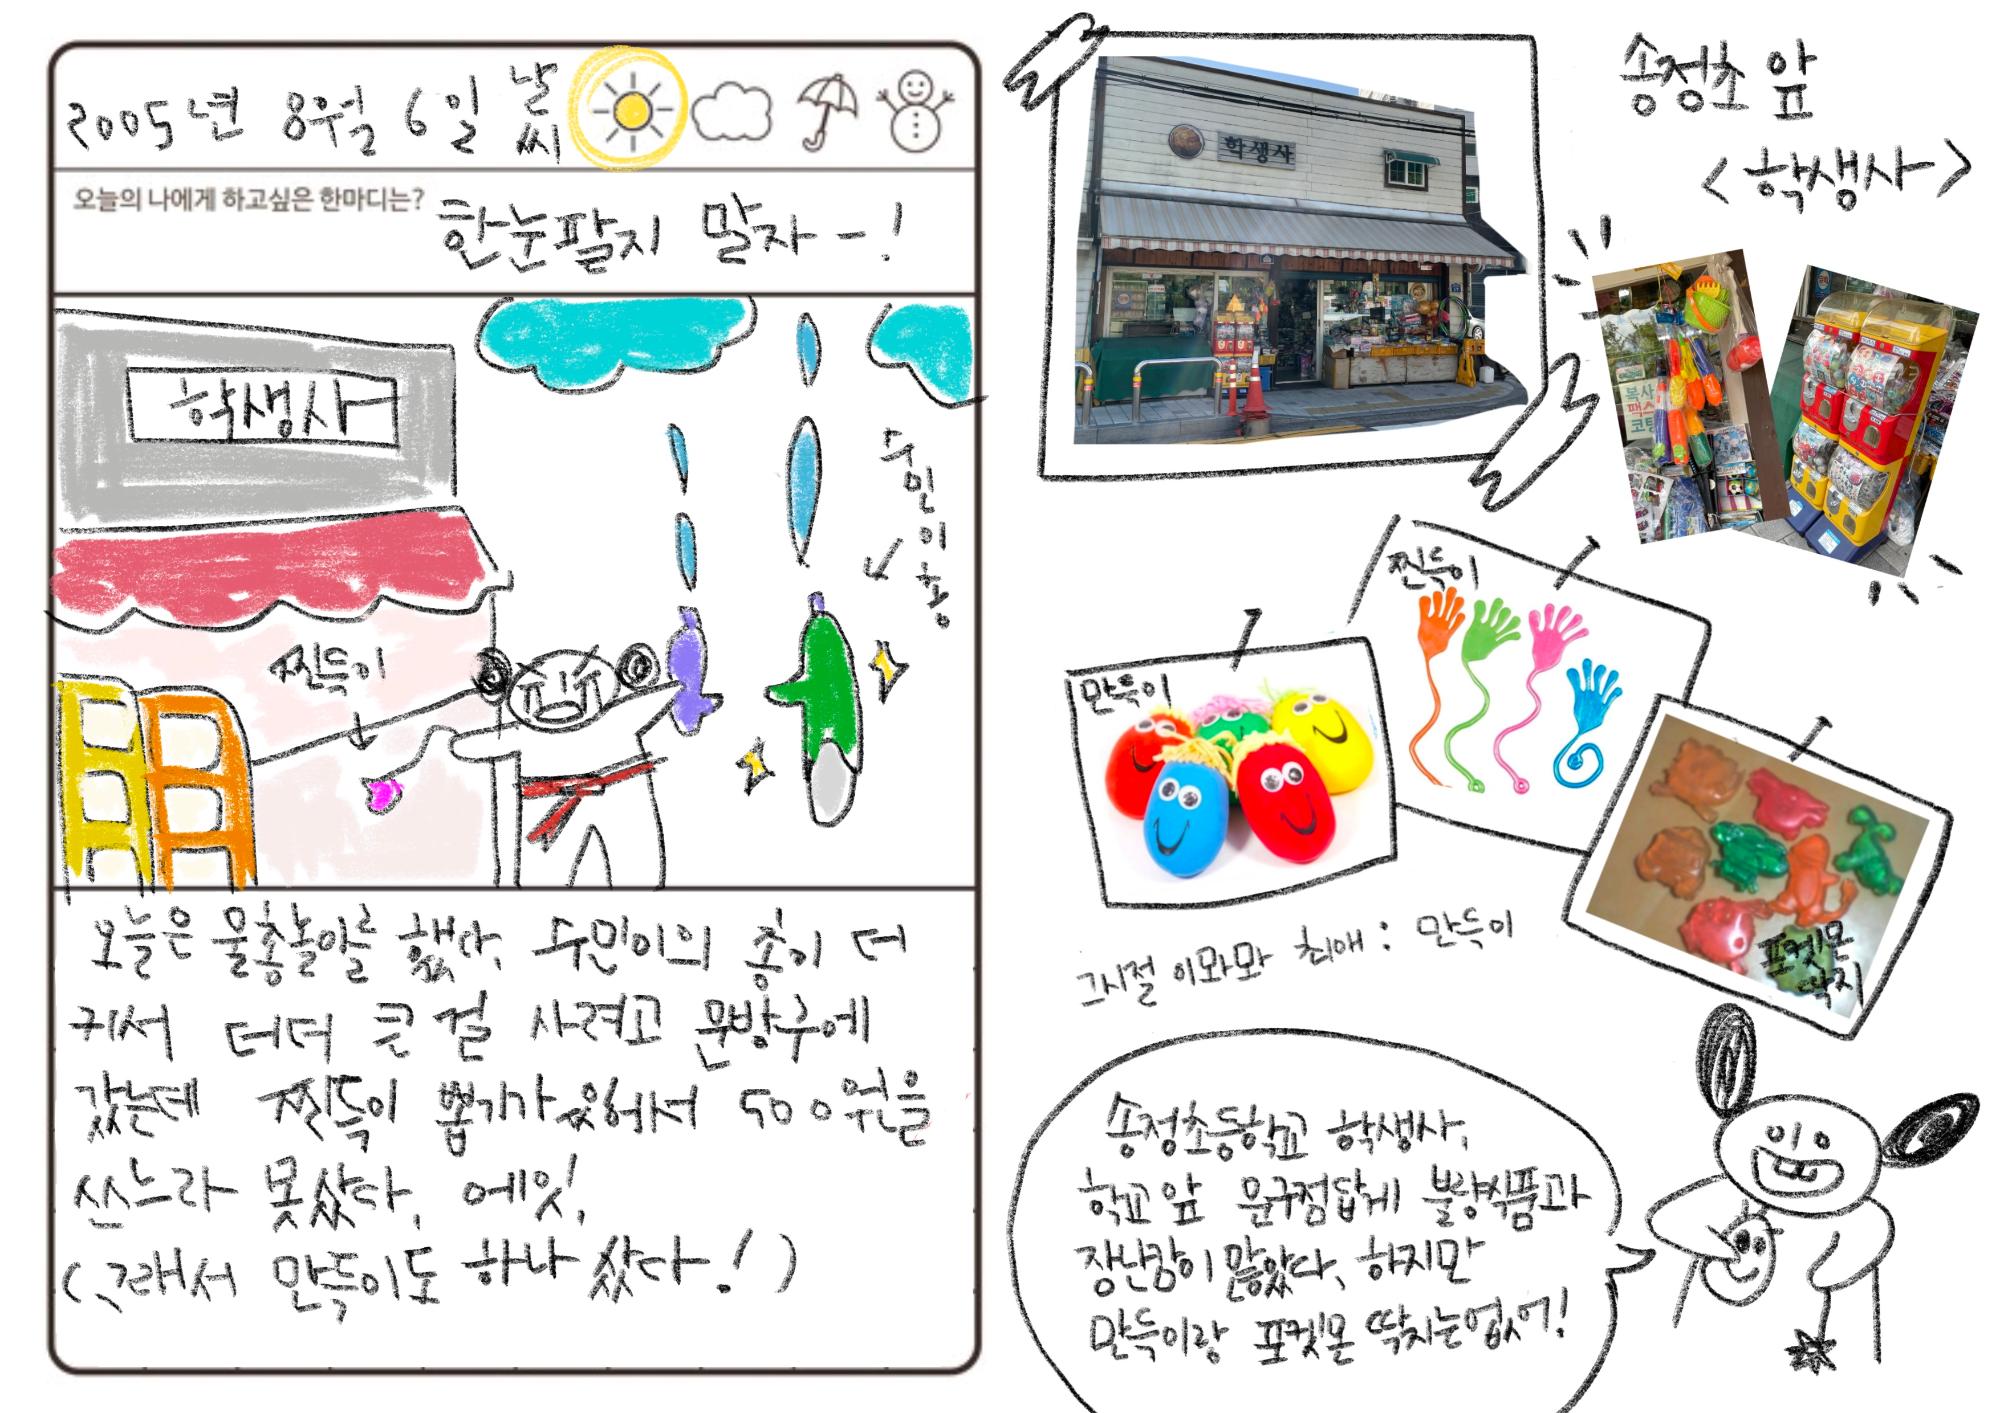 2005년 8월 6일 날씨
오늘의 나에게 하고싶은 한마디는?
한눈팔지 말자-!
학생사
수민이총
찐득이
오늘은 물총놀이를 했다. 수민이의 총이 더
커서 더더 큰 걸 사려고 문방구에
갔는데 찐득이 뽑기가 있어서 500원을
쓰느라 못샀다. 에잇!
(그래서 만득이도 하나 샀다!)
송정초 앞
<학생사>
학생사
복사
팩스
코팅
찐득이
만득이
포켓몬
딱지
그시절 이모모 최애 : 만득이
송정초등학교 학생사.
학교 앞 문구점답게 불량식품과
장난감이 많았다. 하지만
만득이랑 포켓몬 딱지는 없어!